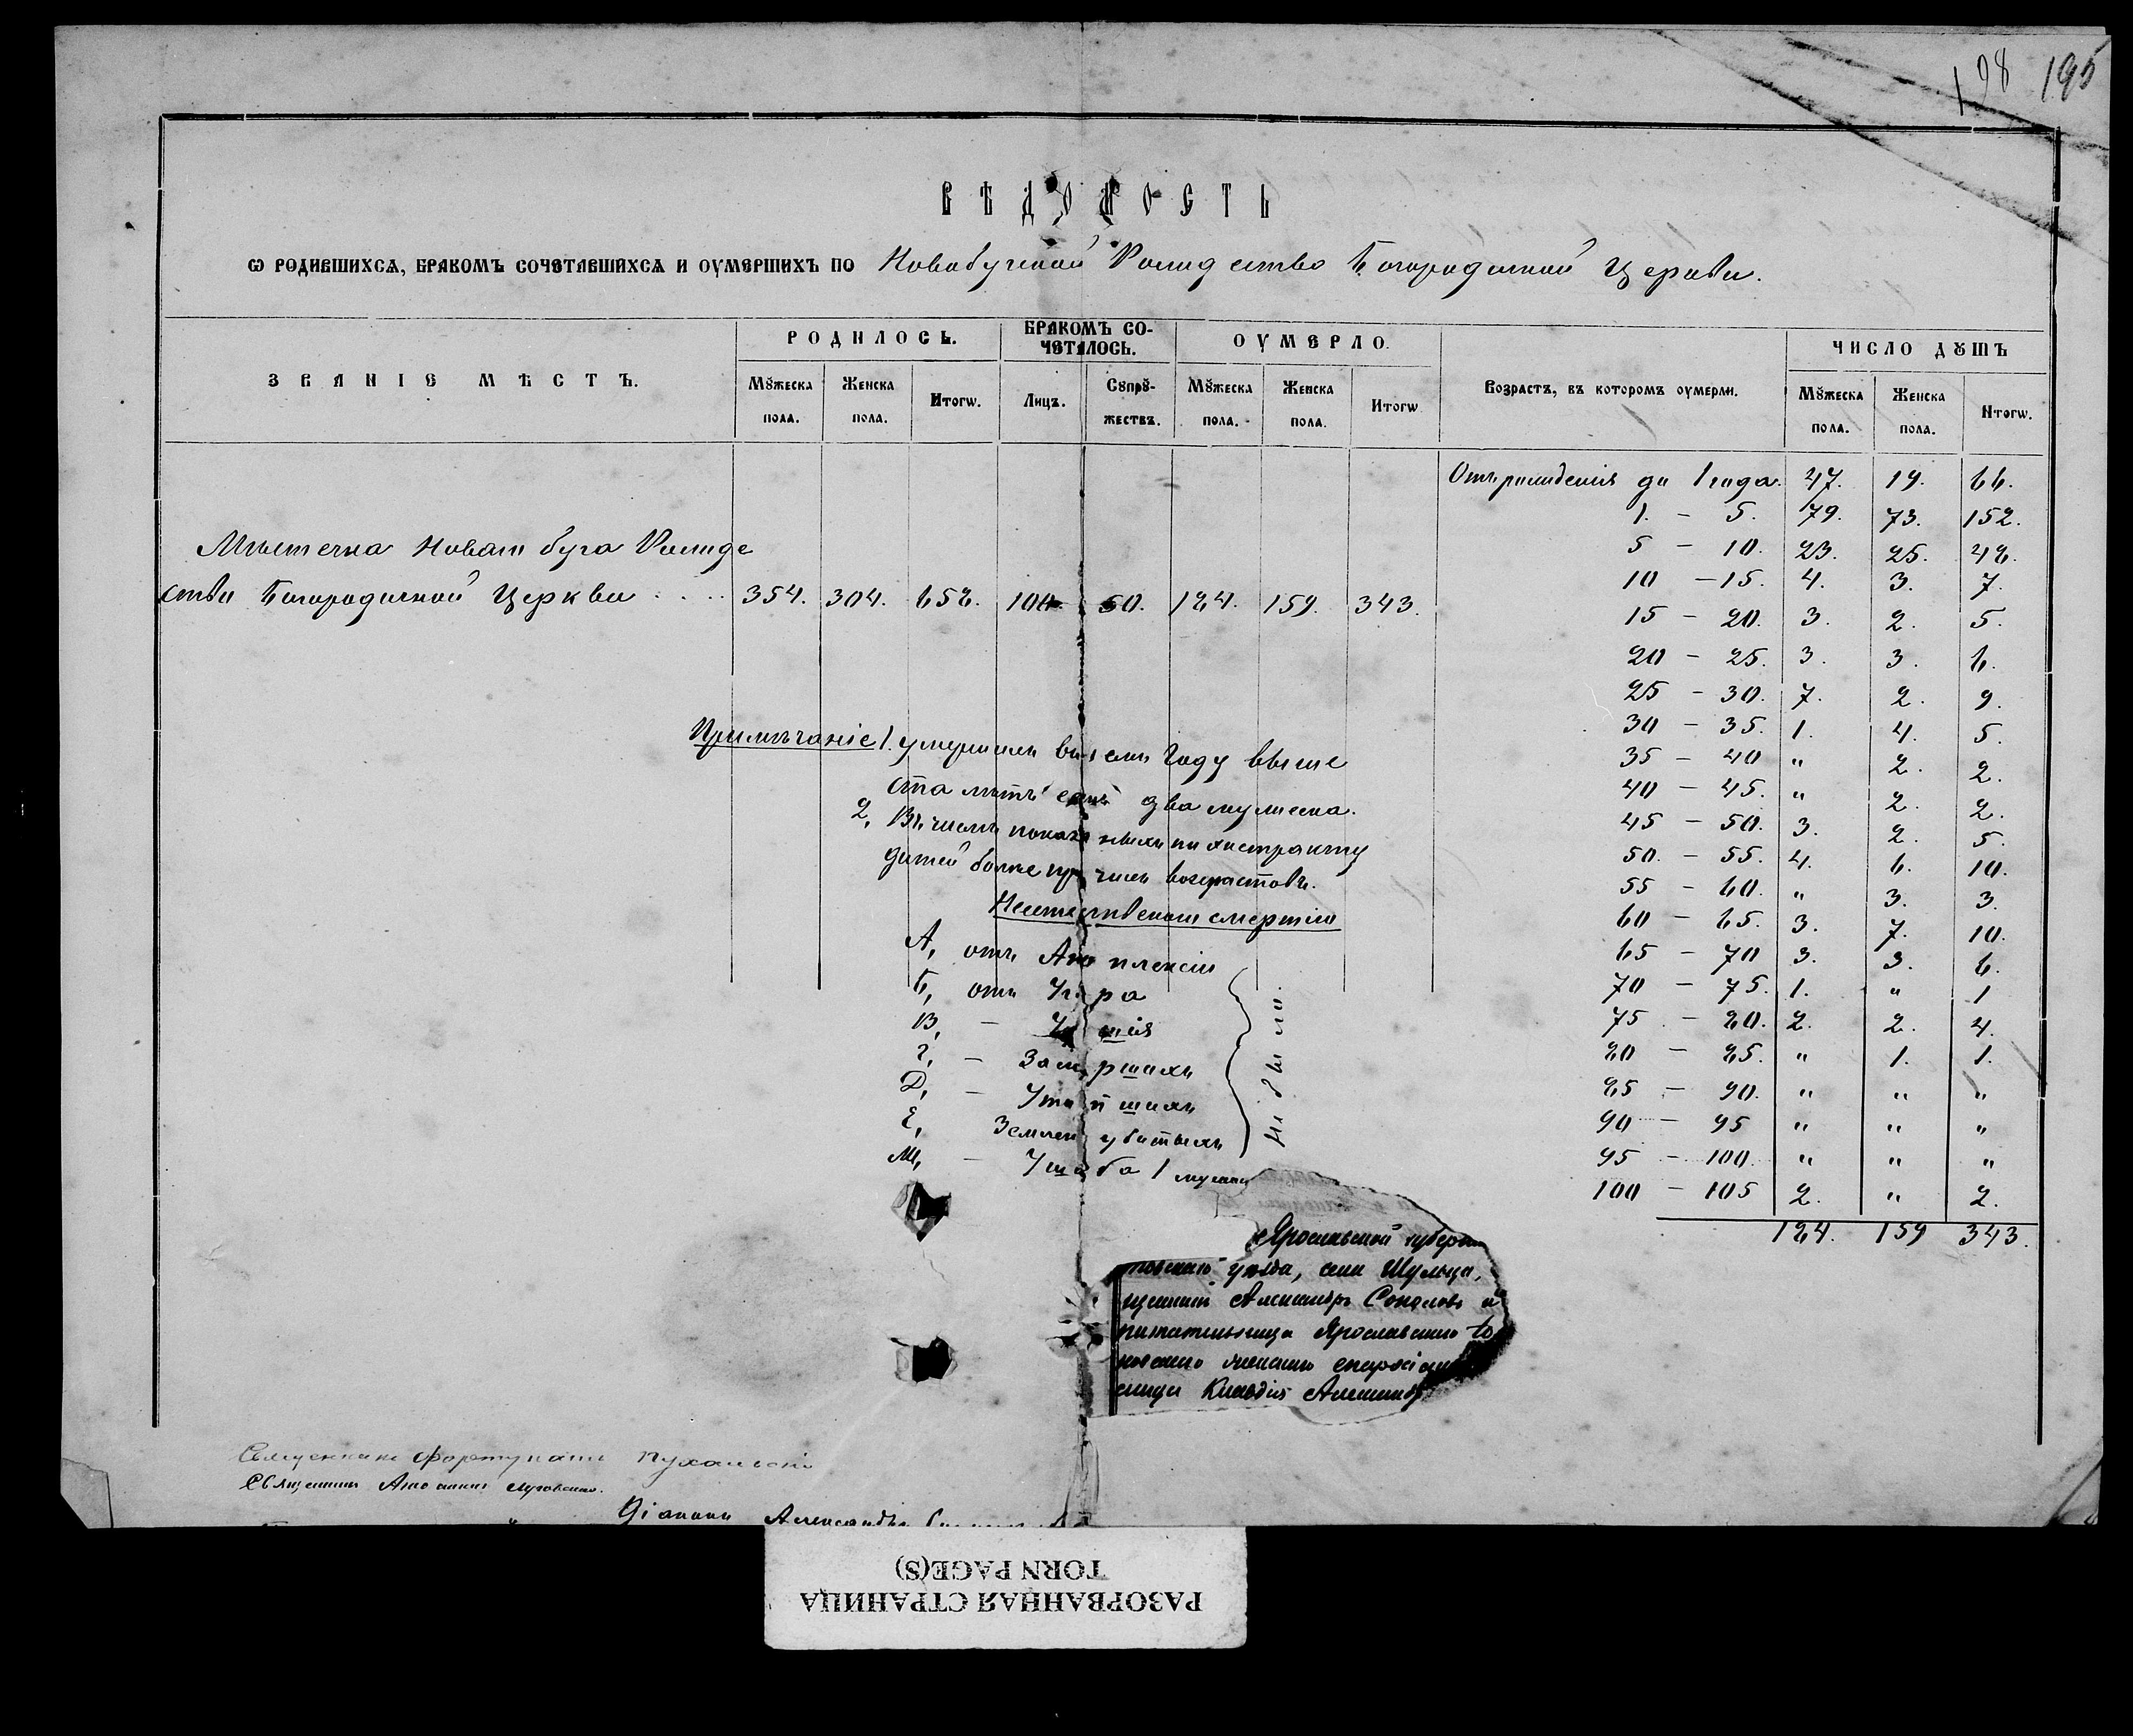 198 195
ВѢДОМОСТЬ
Ѡ РОДИВШИХСѦ, БРАКОМЪ СОЧЕТАВШИХСѦ И ОУМЕРШИХЪ ПО Новобугской Рождество Богородичной Церкви.
ЗВАНІЕ МѢСТЪ.
РОДИЛОСЬ.
БРАКОМЪ СО-
ЧЕТАЛОСЬ.
ОУМЕРЛО.
Возрастъ, въ которомъ оумерли.
ЧИСЛО ДꙊШЪ
Мꙋжеска пола. Женска пола. Итогѡ. Лицъ. Сꙋпрꙋ-жествъ. Мꙋжеска пола. Женска пола. Итогѡ Мꙋжеска пола. Женска пола. Итогѡ.
Мѣстечка Новаго буга Рожде
ства Богородичной Церкви 354. 304. 658. 100 50. 184. 159. 343.
Отъ рожденія до 1 года. 47. 19. 66.
1. - 5. 79. 73. 152.
5 - 10. 23. 25. 48.
10 - 15. 4. 3. 7.
15 - 20. 3. 2. 5.
20 - 25. 3. 3. 6.
25 - 30. 7. 2. 9.
30 - 35. 1. 4. 5.
35 - 40 " 2. 2.
40 - 45. " 2. 2.
45 - 50. 3. 2. 5.
50. - 55. 4. 6. 10.
55 - 60. " 3. 3.
60 - 65. 3. 7. 10.
65 - 70 3. 3. 6.
70 - 75. 1. " 1
75 - 80. 2. 2. 4.
80 - 85. " 1. 1.
85 - 90. " " "
90 - 95 " " "
95 - 100. " " "
100 - 105 2. " 2.
184. 159 343.
Примѣчаніе 1. умершихъ въ семъ году выше
ста лѣтъ есть два мужеска.
2, Въ числѣ показанныхъ по экстракту
дѣтей болѣе прочихъ возрастовъ.
Неестественою смертію
А, отъ Апоплексіи
Б, отъ Угара
В, -
Г, - Замерзшихъ
Д, - Утопшихъ
Е, Землею убитыхъ
Ж, - Ушиба 1 мужеск
Не было.
Ярославской губерн
товскаго уѣзда, села Шульца,
щенникъ Александръ Соколовъ и
питательница Ярославскаго Іо
новскаго женскаго епархіаль
лища Клавдія Александр
Священникъ Фортунатъ Пухальскій
Священникъ
Діаконъ Александръ
РАЗОРВАННАЯ СТРАНИЦА
TORN PAGE(S)